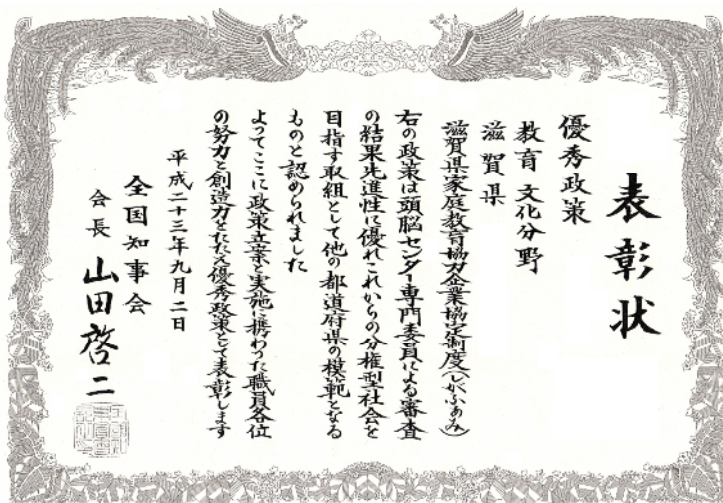 表彰状
優秀政策
教育 文化分野
滋賀県
滋賀県家庭教育協力企業協定制度(しがふぁみ)
右の政策は頭脳センター専門委員による審査
の結果先進性に優れこれからの分権型社会を
目指す取組として他の都道府県の模範となる
ものと認められました
よってここに政策立案と実施に携わった職員各位
の努力と創造力をたたえ優秀政策として表彰します
平成二十三年九月二日
全国知事会
会長 山田啓二